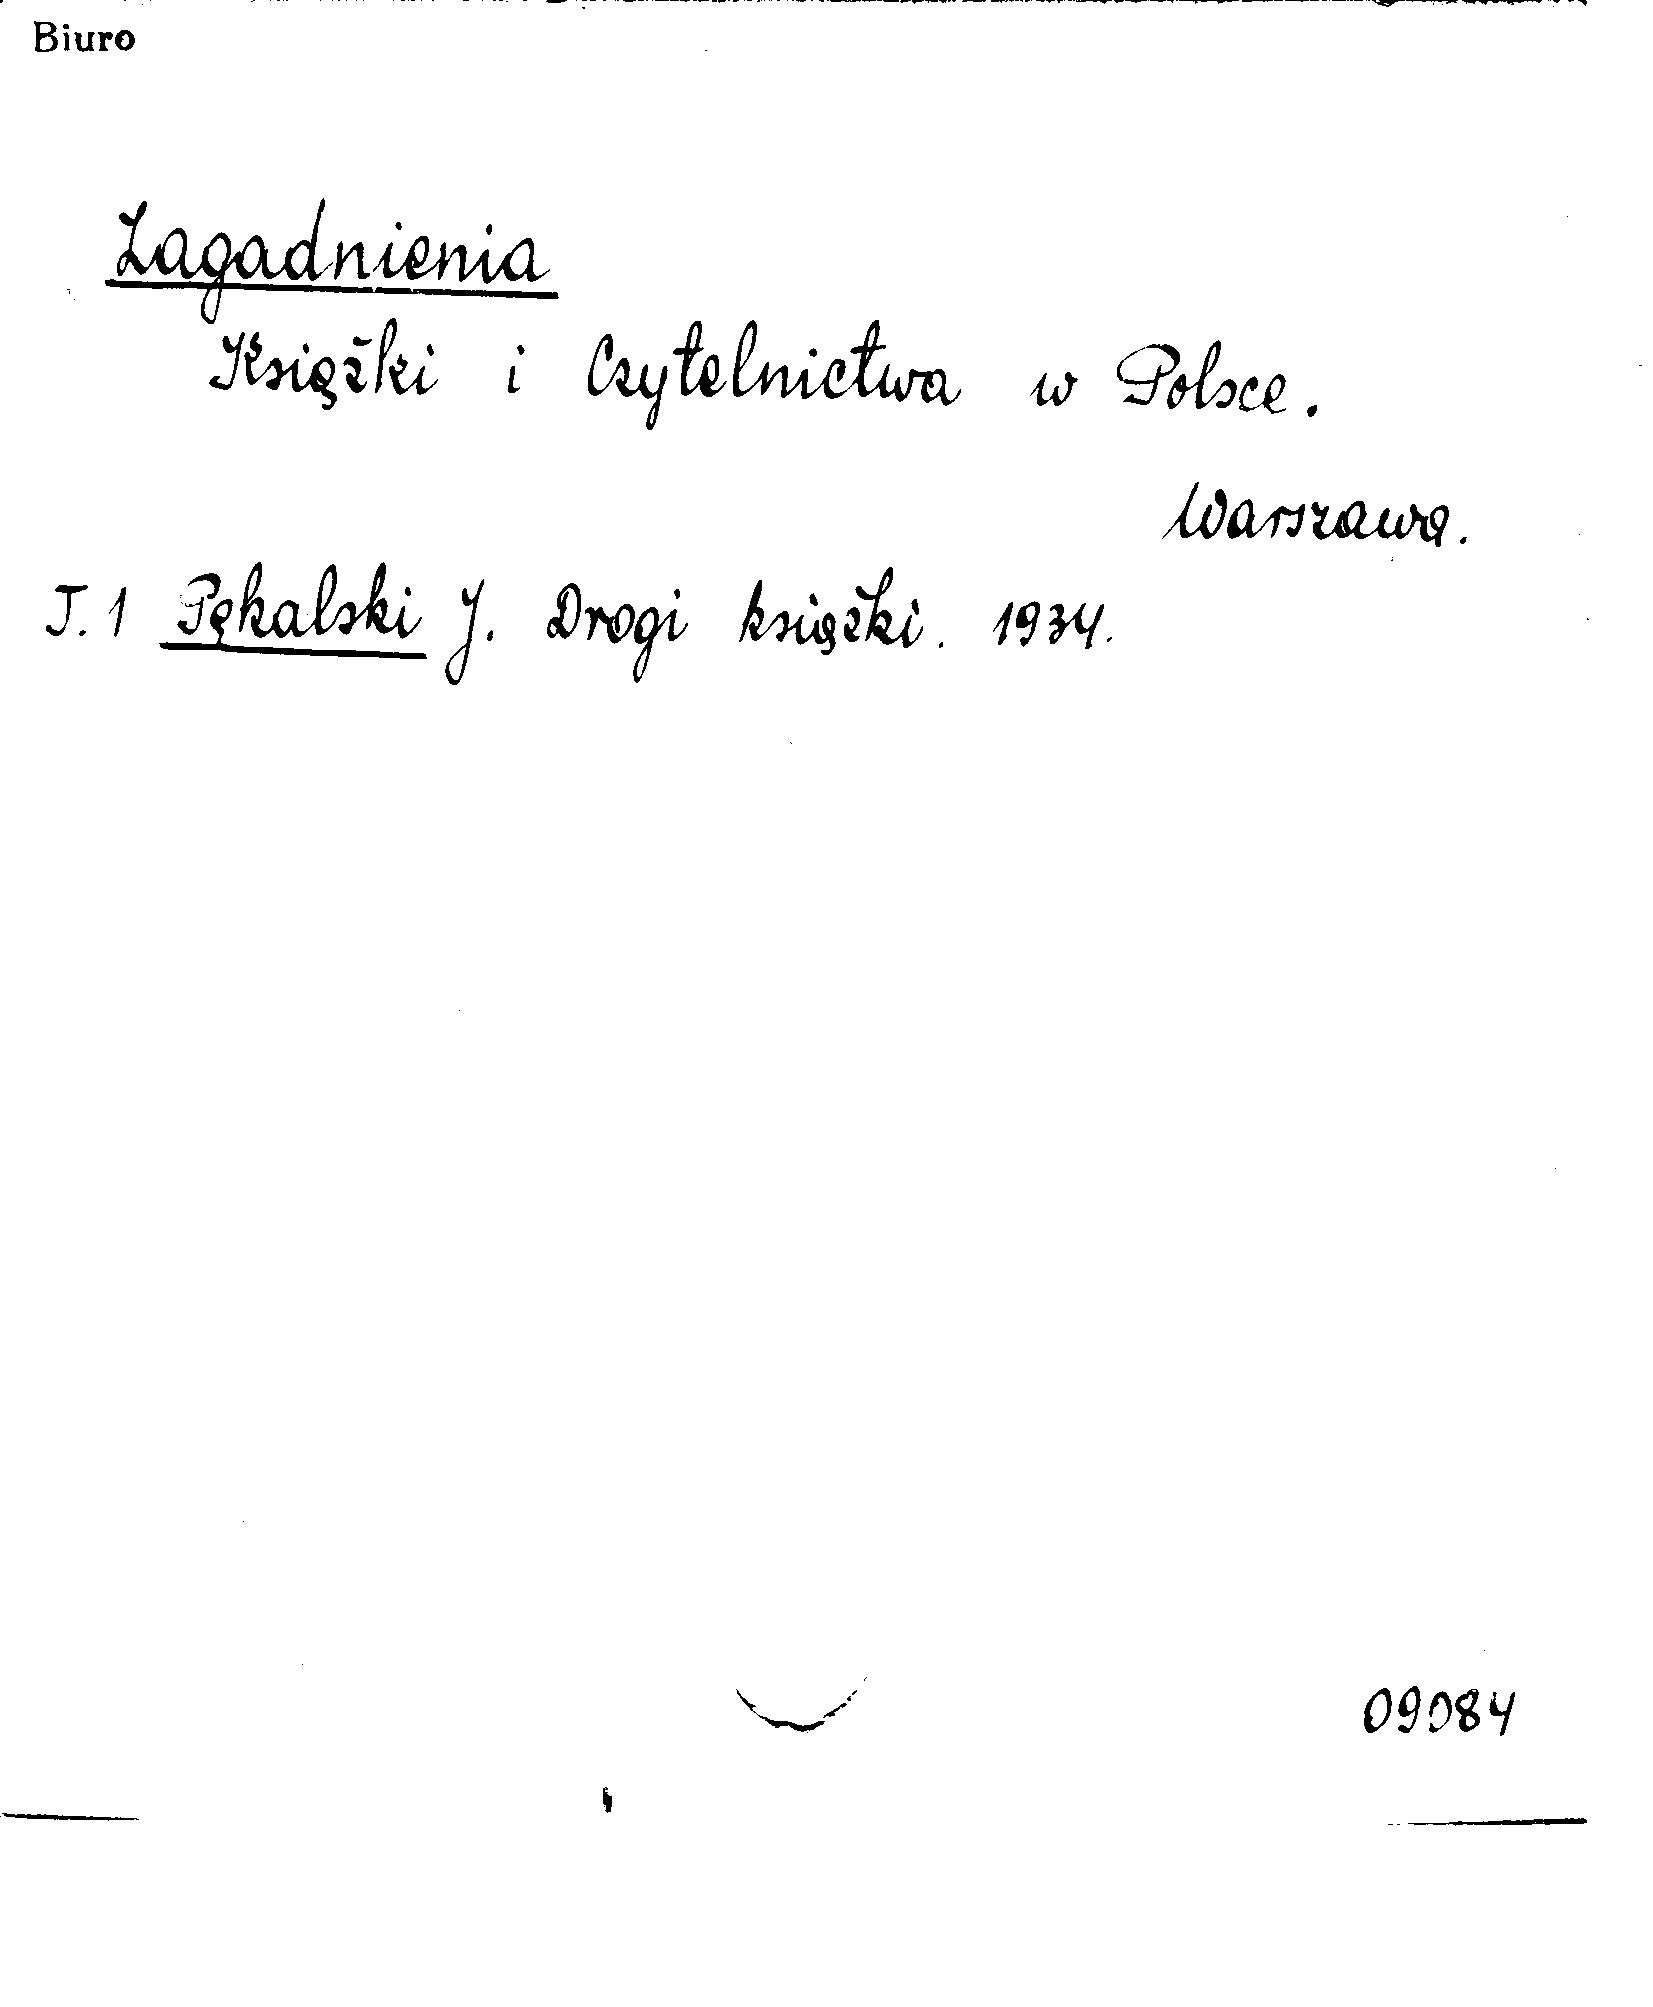 Biuro
Zagadnienia
Książki i Czytelnictwa w Polsce.
Warszawa.
T. 1 Pękalski J. Drogi książki. 1934.
09084